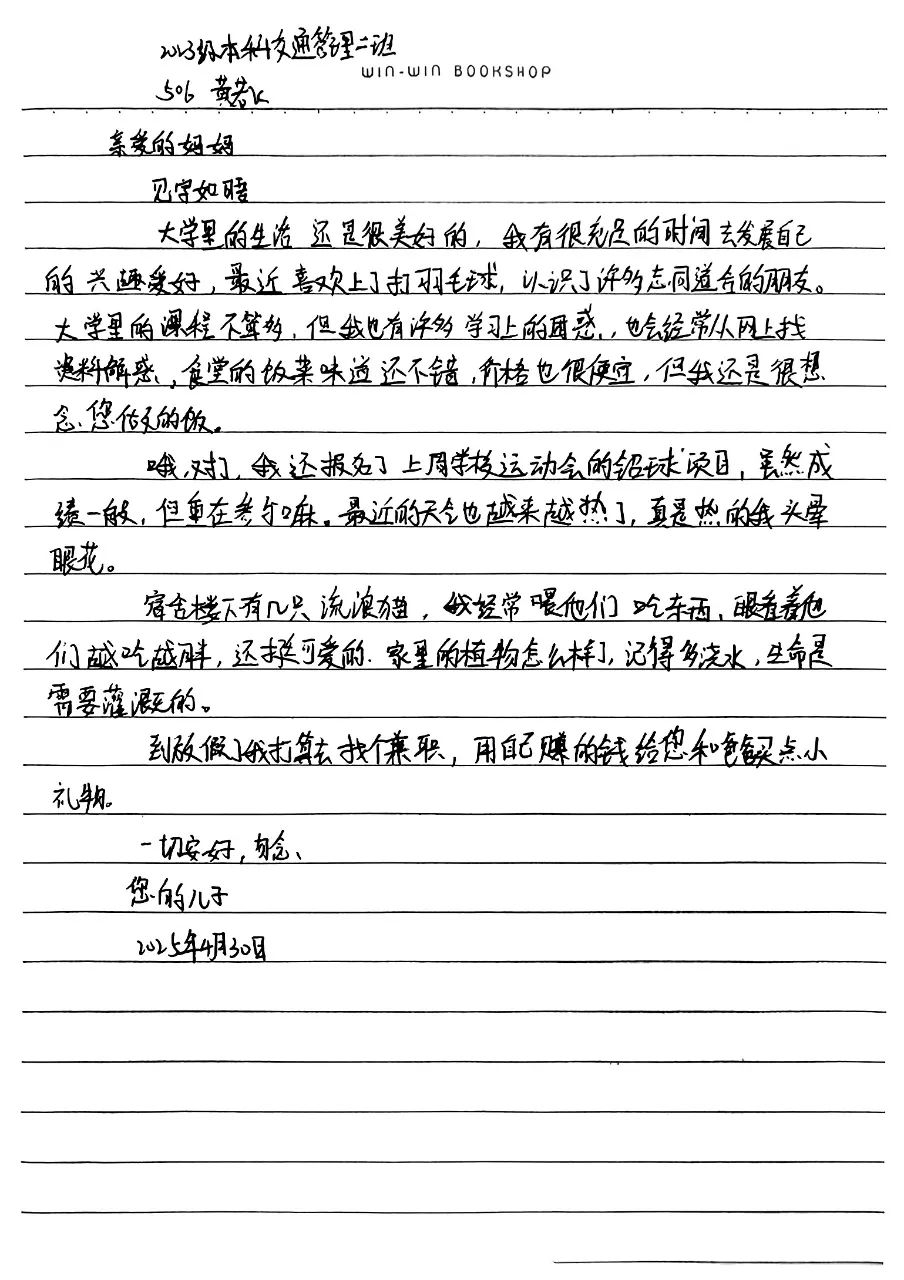 2023级本科交通管理二班
WIN-WIN BOOKSHOP
506 黄若
亲爱的妈妈
见字如晤
大学里的生活还是很美好的，我有很充足的时间去发展自己
的兴趣爱好，最近喜欢上了打羽毛球，认识了许多志同道合的朋友。
大学里的课程不算多，但我也有许多学习上的困惑，也会经常从网上找
资料解惑，食堂的饭菜味道还不错，价格也很便宜，但我还是很想
念您做的饭。
哦，对了，我还报名了上周学校运动会的铅球项目，虽然成
绩一般，但重在参与嘛。最近的天气也越来越热了，真是热的我头晕
眼花。
宿舍楼下有几只流浪猫，我经常喂他们吃东西，眼看着他
们越吃越胖，还挺可爱的．家里的植物怎么样了，记得多浇水，生命是
需要灌溉的。
到放假了我打算去找个兼职，用自己赚的钱给您和爸爸买点小
礼物。
一切安好，勿念、
您的儿子
2025年4月30日